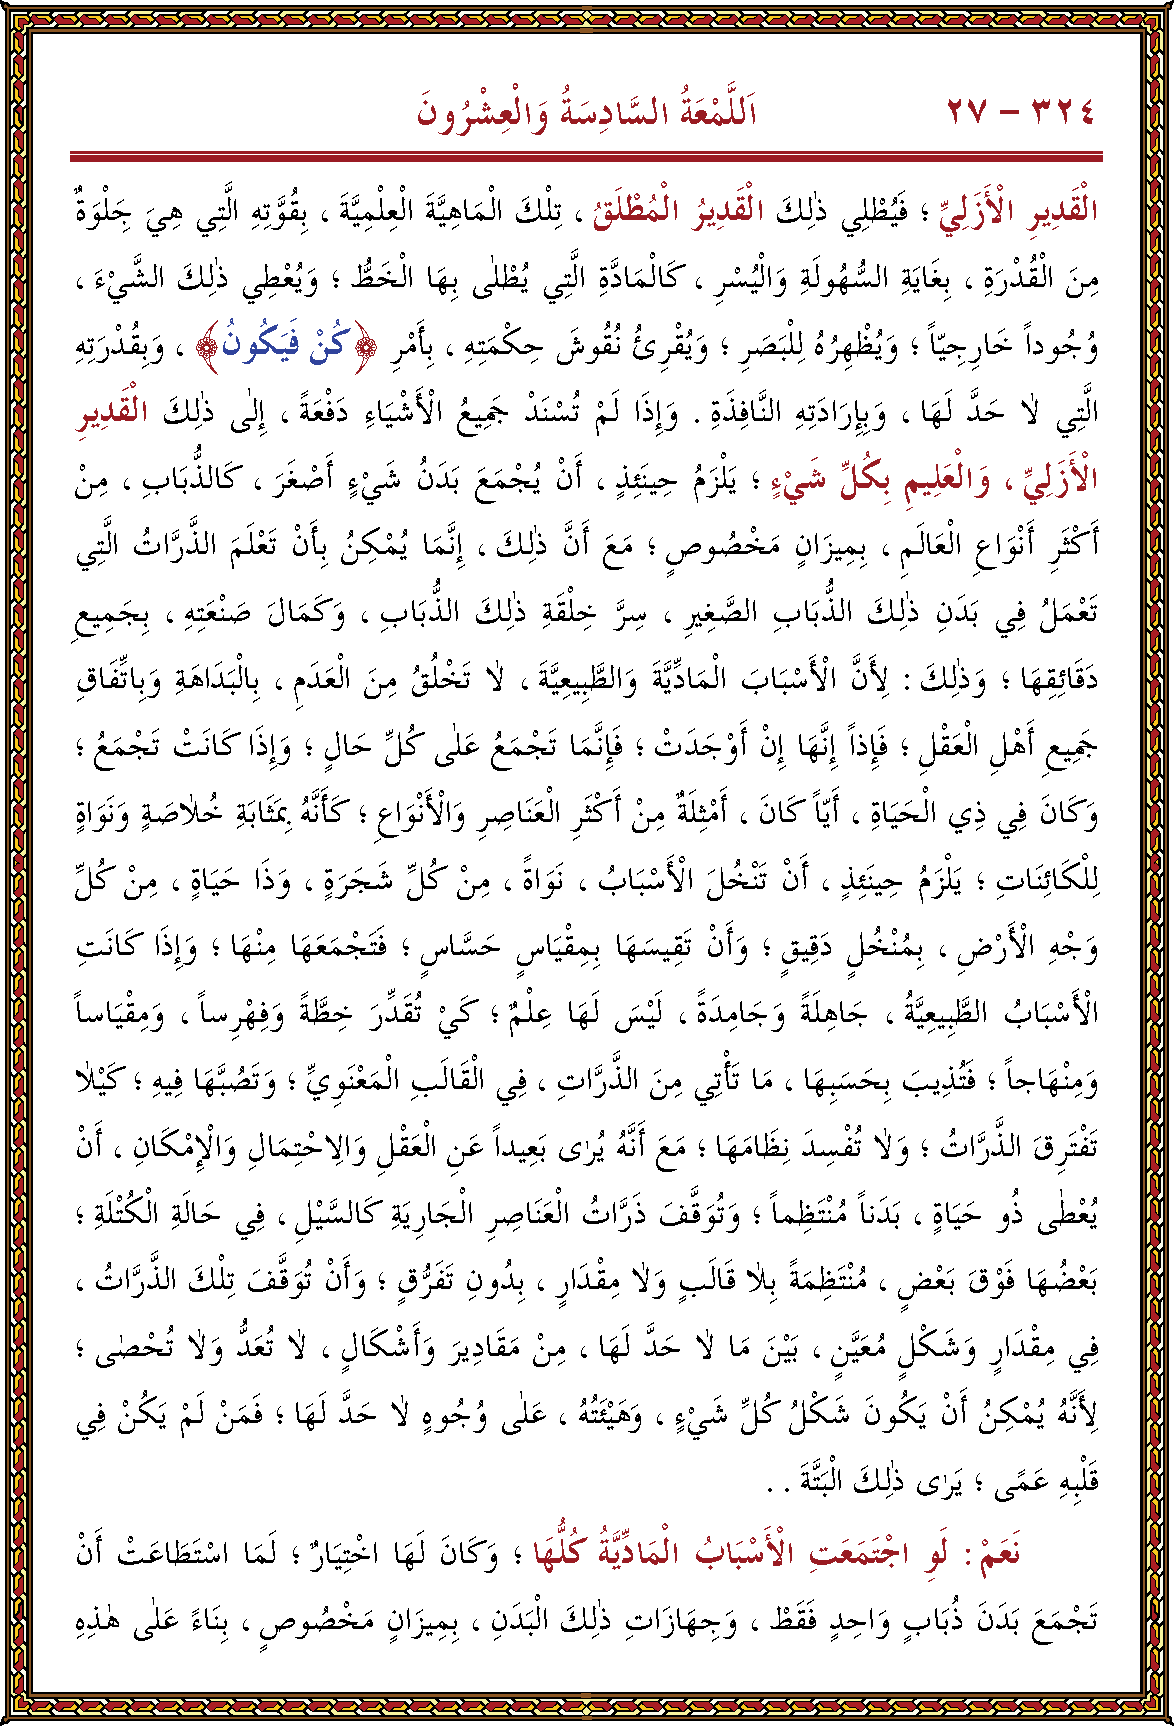 ٣٢٤ – ٢٧ اَللَّمْعَةُ السَّادِسَةُ وَالْعِشْرُونَ
الْقَدِيرِ الْأَزَلِيِّ ؛ فَيُطْلِي ذٰلِكَ الْقَدِيرُ الْمُطْلَقُ ، تِلْكَ الْمَاهِيَّةَ الْعِلْمِيَّةَ ، بِقُوَّتِهِ الَّتِي هِيَ جَلْوَةٌ
مِنَ الْقُدْرَةِ ، بِغَايَةِ السُّهُولَةِ وَالْيُسْرِ ، كَالْمَادَّةِ الَّتِي يُطْلٰى بِهَا الْخَطُّ ؛ وَيُعْطِي ذٰلِكَ الشَّيْءَ ،
وُجُوداً خَارِجِيّاً ؛ وَيُظْهِرُهُ لِلْبَصَرِ ؛ وَيُقْرِئُ نُقُوشَ حِكْمَتِهِ ، بِأَمْرِ ﴿كُنْ فَيَكُونُ﴾ ، وَبِقُدْرَتِهِ
الَّتِي لاٰ حَدَّ لَهَا ، وَبِإِرَادَتِهِ النَّافِذَةِ . وَإِذَا لَمْ تُسْنَدْ جَمِيعُ الْأَشْيَاءِ دَفْعَةً ، إِلٰى ذٰلِكَ الْقَدِيرِ
الْأَزَلِيِّ ، وَالْعَلِيمِ بِكُلِّ شَيْءٍ ؛ يَلْزَمُ حِينَئِذٍ ، أَنْ يُجْمَعَ بَدَنُ شَيْءٍ أَصْغَرَ ، كَالذُّبَابِ ، مِنْ
أَكْثَرِ أَنْوَاعِ الْعَالَمِ ، بِمِيزَانٍ مَخْصُوصٍ ؛ مَعَ أَنَّ ذٰلِكَ ، إِنَّمَا يُمْكِنُ بِأَنْ تَعْلَمَ الذَّرَّاتُ الَّتِي
تَعْمَلُ فِي بَدَنِ ذٰلِكَ الذُّبَابِ الصَّغِيرِ ، سِرَّ خِلْقَةِ ذٰلِكَ الذُّبَابِ ، وَكَمَالَ صَنْعَتِهِ ، بِجَمِيعِ
دَقَائِقِهَا ؛ وَذٰلِكَ : لِأَنَّ الْأَسْبَابَ الْمَادِّيَّةَ وَالطَّبِيعِيَّةَ ، لاٰ تَخْلُقُ مِنَ الْعَدَمِ ، بِالْبَدَاهَةِ وَبِاتِّفَاقِ
جَمِيعِ أَهْلِ الْعَقْلِ ؛ فَإِذاً إِنَّهَا إِنْ أَوْجَدَتْ ؛ فَإِنَّمَا تَجْمَعُ عَلٰى كُلِّ حَالٍ ؛ وَإِذَا كَانَتْ تَجْمَعُ ؛
وَكَانَ فِي ذِي الْحَيَاةِ ، أَيّاً كَانَ ، أَمْثِلَةٌ مِنْ أَكْثَرِ الْعَنَاصِرِ وَالْأَنْوَاعِ ؛ كَأَنَّهُ بِمَثَابَةِ خُلاٰصَةٍ وَنَوَاةٍ
لِلْكَائِنَاتِ ؛ يَلْزَمُ حِينَئِذٍ ، أَنْ تَنْخُلَ الْأَسْبَابُ ، نَوَاةً ، مِنْ كُلِّ شَجَرَةٍ ، وَذَا حَيَاةٍ ، مِنْ كُلِّ
وَجْهِ الْأَرْضِ ، بِمُنْخُلٍ دَقِيقٍ ؛ وَأَنْ تَقِيسَهَا بِمِقْيَاسٍ حَسَّاسٍ ؛ فَتَجْمَعَهَا مِنْهَا ؛ وَإِذَا كَانَتِ
الْأَسْبَابُ الطَّبِيعِيَّةُ ، جَاهِلَةً وَجَامِدَةً ، لَيْسَ لَهَا عِلْمٌ ؛ كَيْ تُقَدِّرَ خِطَّةً وَفِهْرِساً ، وَمِقْيَاساً
وَمِنْهَاجاً ؛ فَتُذِيبَ بِحَسَبِهَا ، مَا تَأْتِي مِنَ الذَّرَّاتِ ، فِي الْقَالَبِ الْمَعْنَوِيِّ ؛ وَتَصُبَّهَا فِيهِ ؛ كَيْلاٰ
تَفْتَرِقَ الذَّرَّاتُ ؛ وَلاٰ تُفْسِدَ نِظَامَهَا ؛ مَعَ أَنَّهُ يُرٰى بَعِيداً عَنِ الْعَقْلِ وَالِاحْتِمَالِ وَالْإِمْكَانِ ، أَنْ
يُعْطٰى ذُو حَيَاةٍ ، بَدَناً مُنْتَظِماً ؛ وَتُوَقَّفَ ذَرَّاتُ الْعَنَاصِرِ الْجَارِيَةِ كَالسَّيْلِ ، فِي حَالَةِ الْكُتْلَةِ ؛
بَعْضُهَا فَوْقَ بَعْضٍ ، مُنْتَظِمَةً بِلاٰ قَالَبٍ وَلاٰ مِقْدَارٍ ، بِدُونِ تَفَرُّقٍ ؛ وَأَنْ تُوَقَّفَ تِلْكَ الذَّرَّاتُ ،
فِي مِقْدَارٍ وَشَكْلٍ مُعَيَّنٍ ، بَيْنَ مَا لاٰ حَدَّ لَهَا ، مِنْ مَقَادِيرَ وَأَشْكَالٍ ، لاٰ تُعَدُّ وَلاٰ تُحْصٰى ؛
لِأَنَّهُ يُمْكِنُ أَنْ يَكُونَ شَكْلُ كُلِّ شَيْءٍ ، وَهَيْئَتُهُ ، عَلٰى وُجُوهٍ لاٰ حَدَّ لَهَا ؛ فَمَنْ لَمْ يَكُنْ فِي
قَلْبِهِ عَمًى ؛ يَرٰى ذٰلِكَ الْبَتَّةَ . .
نَعَمْ : لَوِ اجْتَمَعَتِ الْأَسْبَابُ الْمَادِّيَّةُ كُلُّهَا ؛ وَكَانَ لَهَا اخْتِيَارٌ ؛ لَمَا اسْتَطَاعَتْ أَنْ
تَجْمَعَ بَدَنَ ذُبَابٍ وَاحِدٍ فَقَطْ ، وَجِهَازَاتِ ذٰلِكَ الْبَدَنِ ، بِمِيزَانٍ مَخْصُوصٍ ، بِنَاءً عَلٰى هٰذِهِ